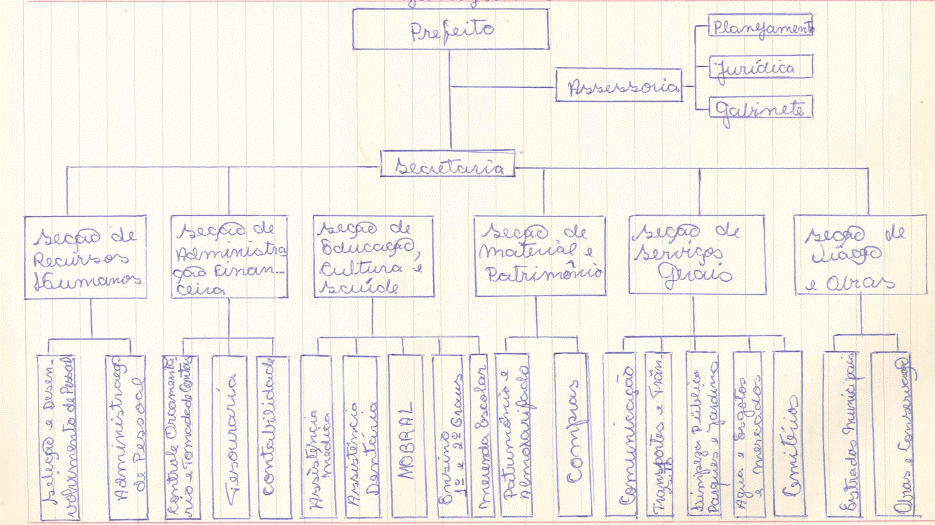 Prefeito
Planejamento
Jurídica
Assessoria
Gabinete
Secretaria
Secção de
Recursos
Humanos
Secção de
Administra
ção Finan-
ceira
Secção de
Educação,
Cultura e
Saúde
Secção de
material e
Patrimônio
Secção de
Serviços
Gerais
Secção de
Viação
e Obras
Seleção e Desen-
volvimento de Pessoal
Administração
de Pessoal
Controle Orçamentá
rio e Tomada de Contas
Tesouraria
Contabilidade
Assistência
Médica
Assistência
Dentária
MOBRAL
Ensino
1º e 2º Graus
Merenda Escolar
Patrimônio e
Almoxarifado
Compras
Comunicação
Transportes e Trân-
sito
Limpeza Pública
Parques e Jardins
Água e Esgotos
e Mercados
Cemitério
Estradas Municipais
Obras e Conservação